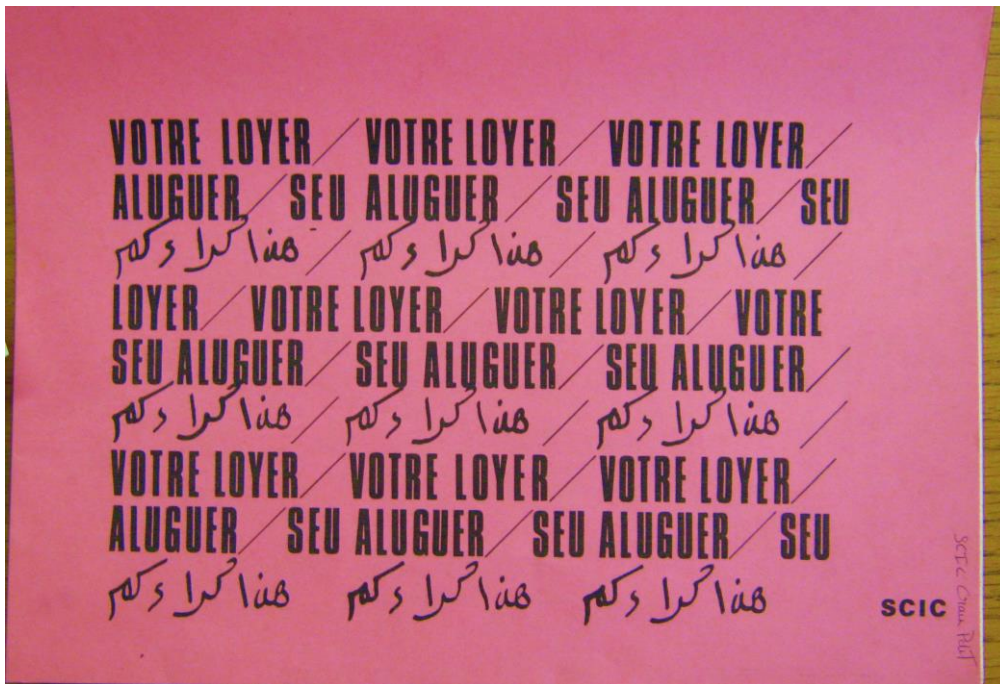 VOTRE LOYER / VOTRE LOYER / VOTRE LOYER /
ALUGUER / SEU ALUGUER / SEU ALUGUER / SEU
هذا كراءكم / هذا كراءكم / هذا كراءكم /
LOYER / VOTRE LOYER / VOTRE LOYER / VOTRE
SEU ALUGUER / SEU ALUGUER / SEU ALUGUER /
هذا كراءكم / هذا كراءكم / هذا كراءكم /
VOTRE LOYER / VOTRE LOYER / VOTRE LOYER /
ALUGUER / SEU ALUGUER / SEU ALUGUER / SEU
هذا كراءكم هذا كراءكم هذا كراءكم
SCIC
SCIC